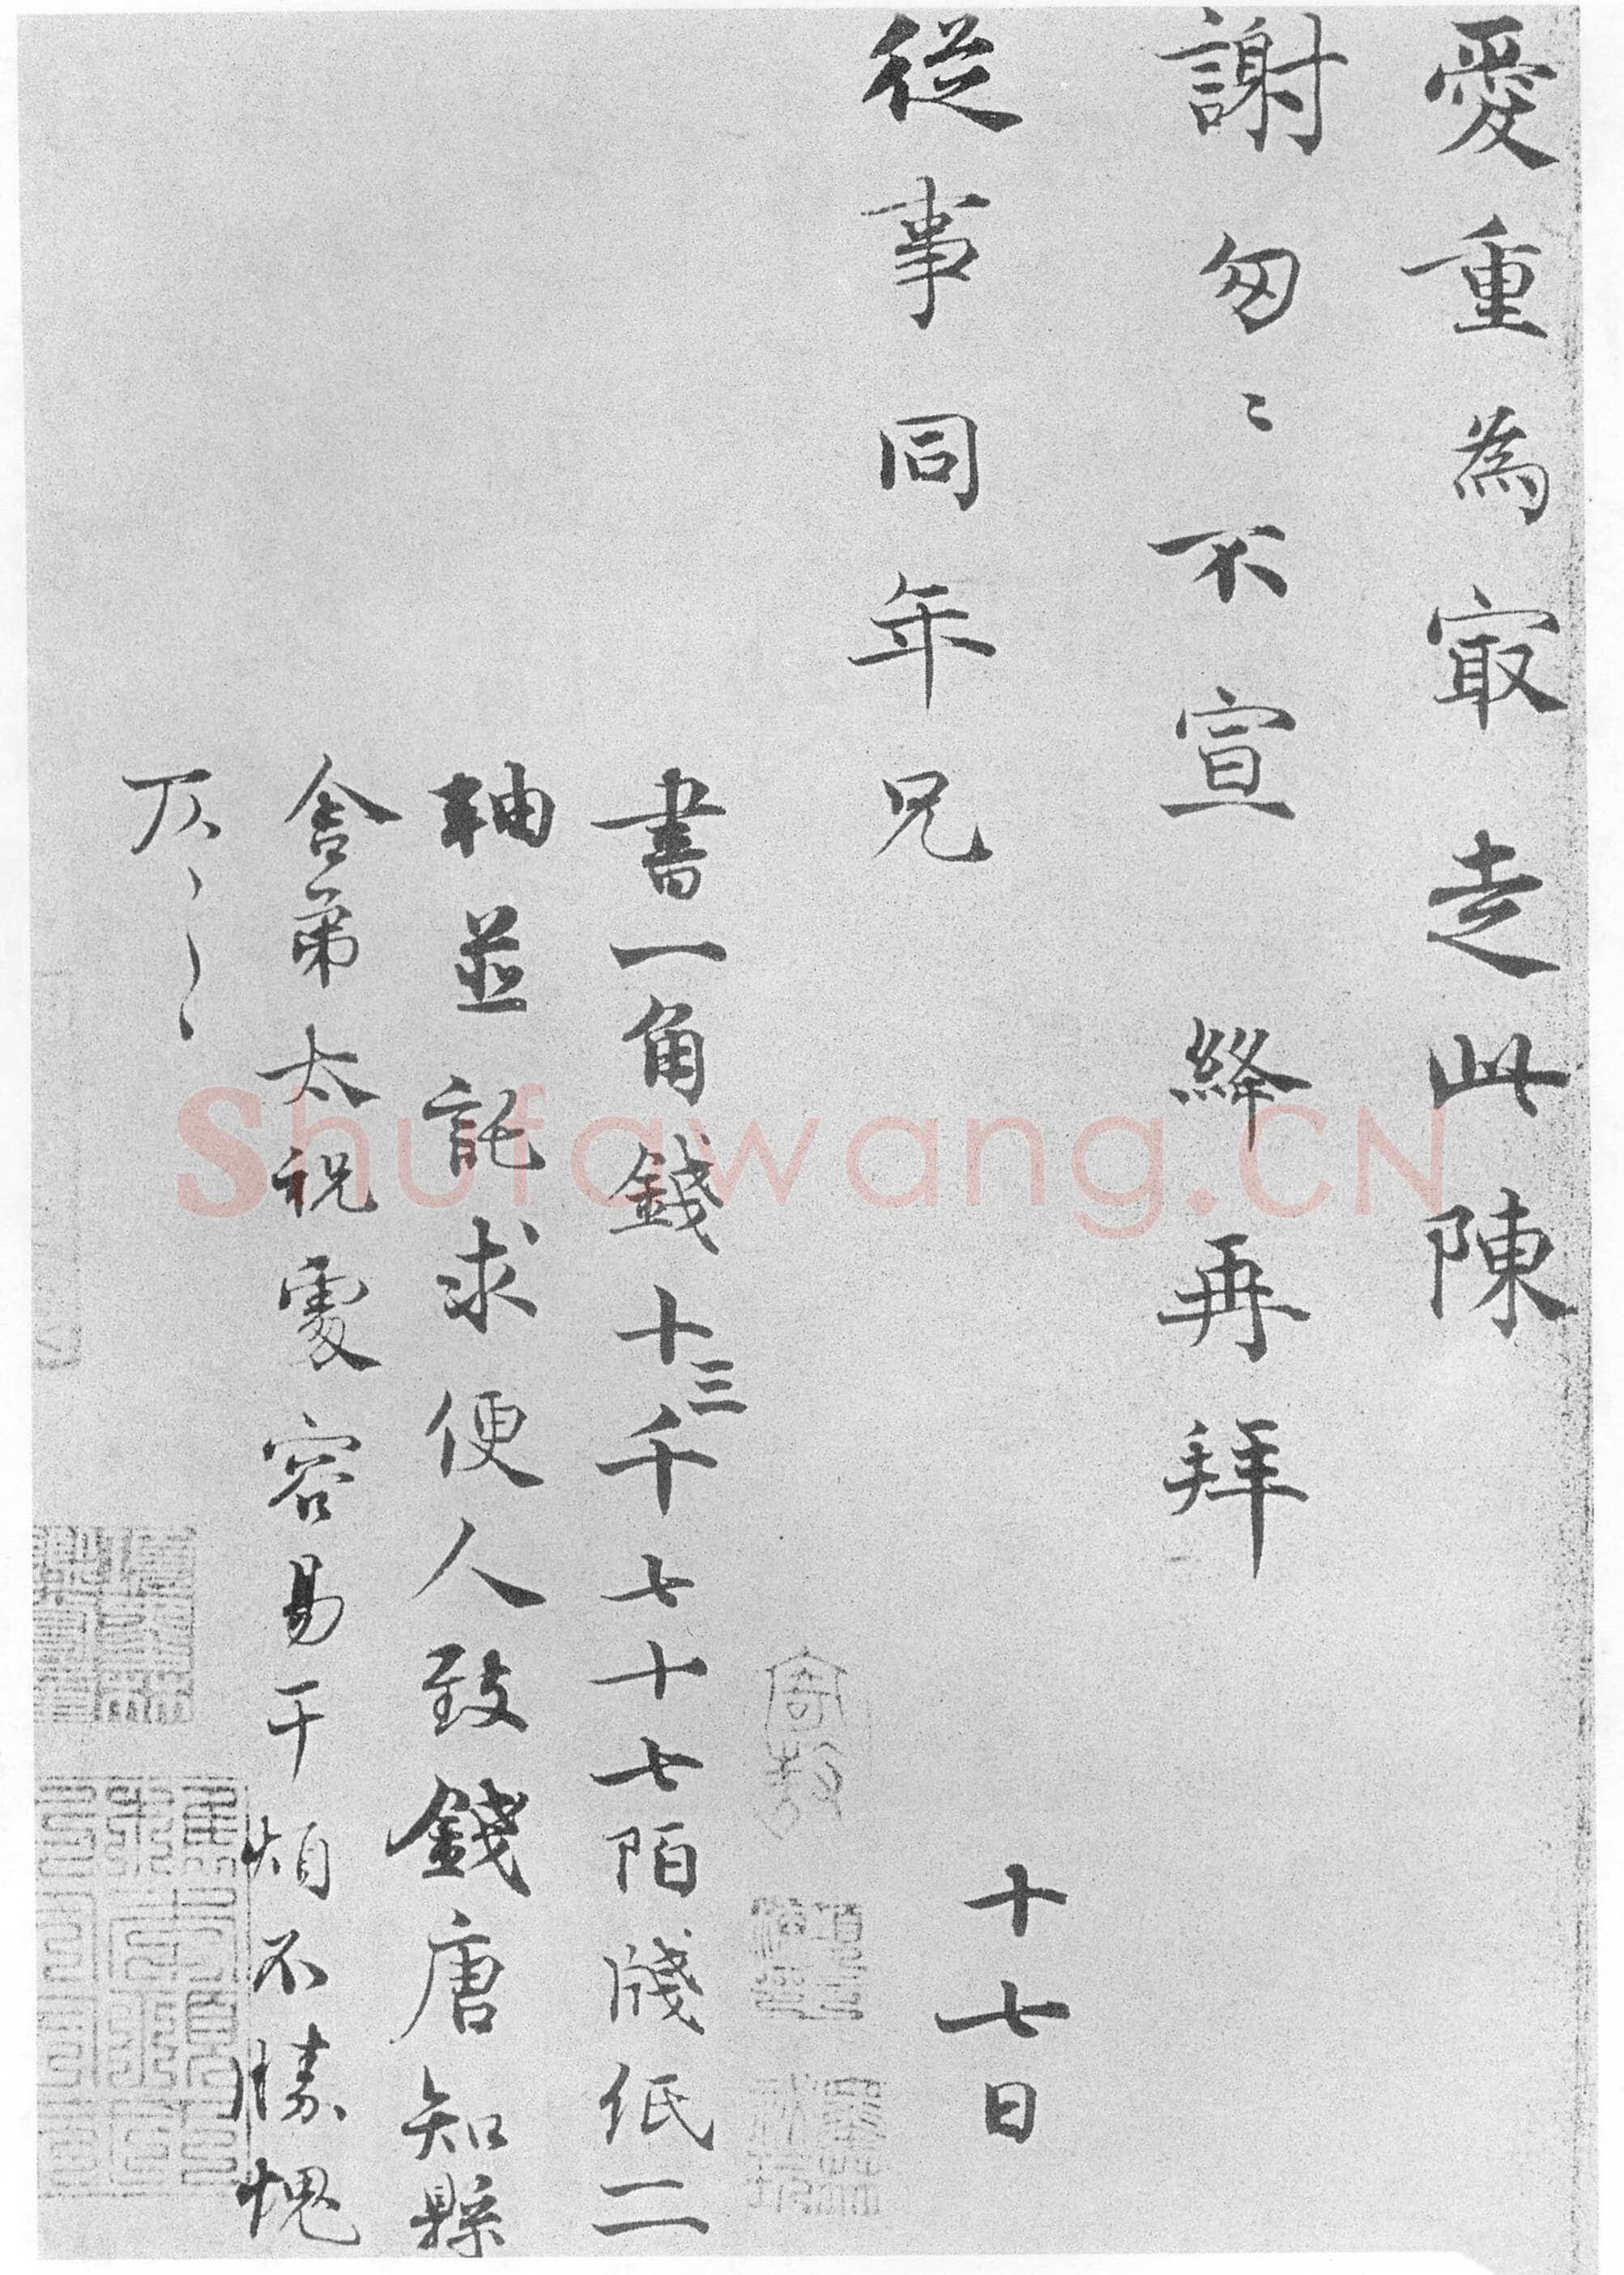 愛重為冣走此陳
謝匆〻不宣 絳再拜
十七日
從事同年兄
書一角錢十三千七十七陌牋紙二
軸並託求便人致錢唐知縣
舍弟太祝處容易干煩不勝愧
仄〻
Shufawang.CN